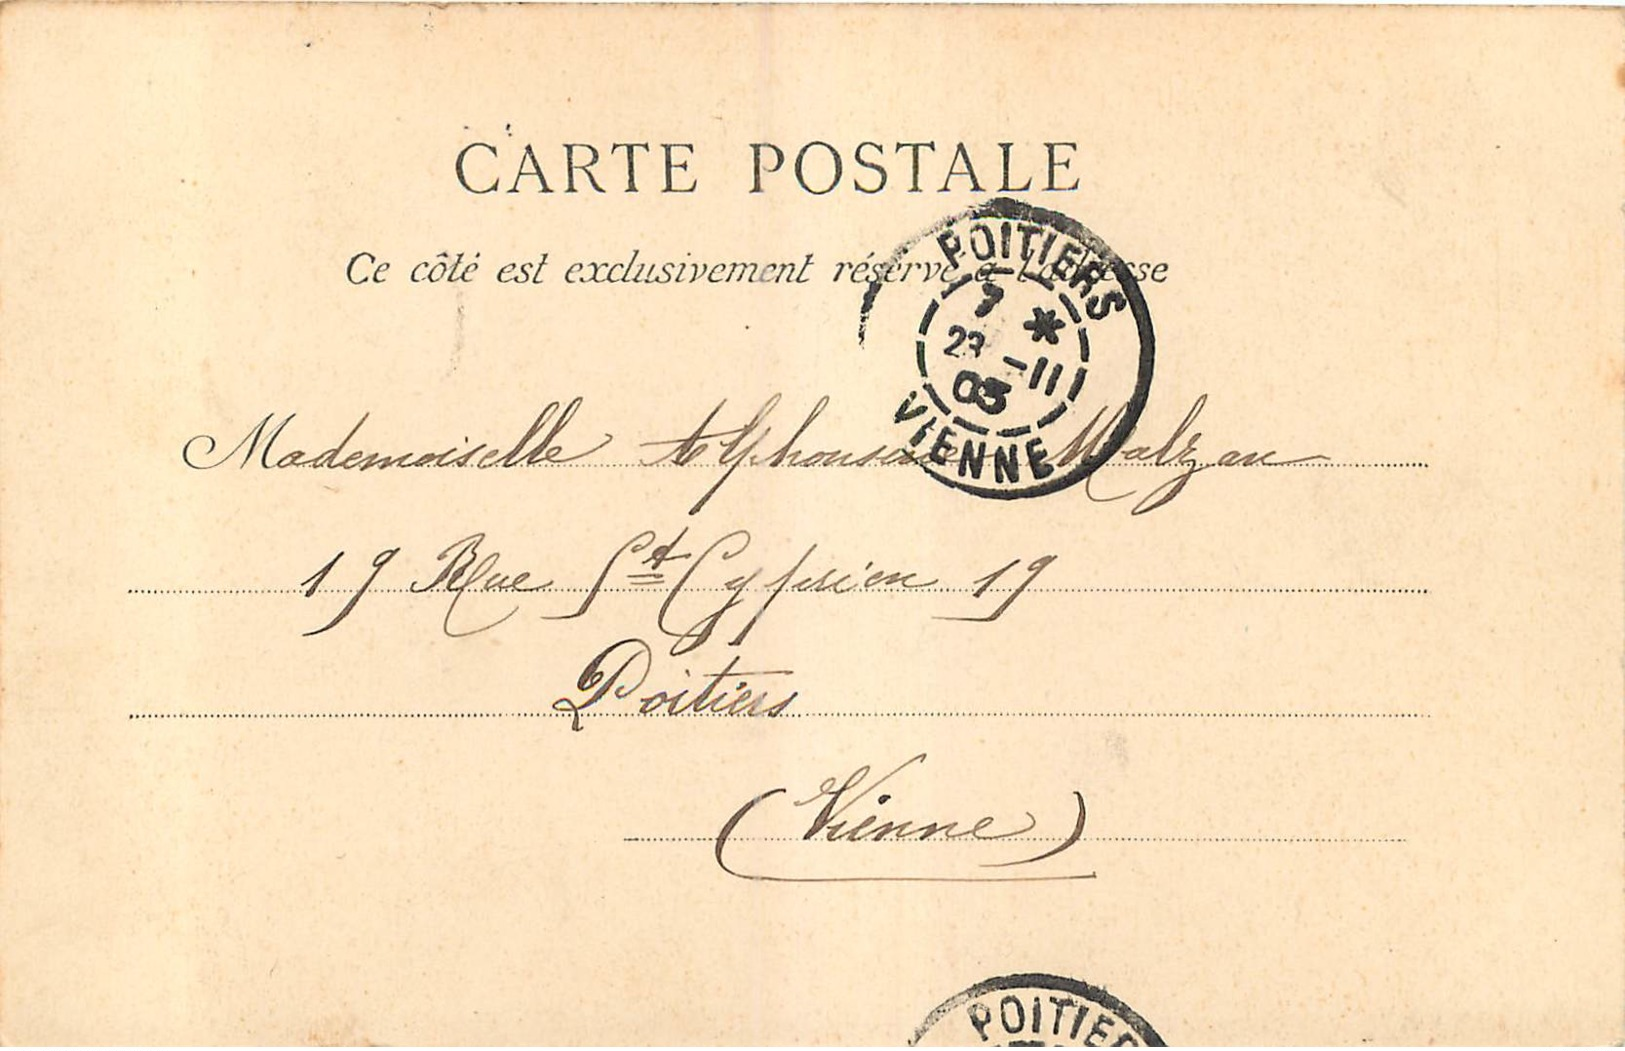 CARTE POSTALE
Ce côté est exclusivement réservé à l'adresse
POITIERS
7 *
23 -11
03
VIENNE
Mademoiselle Alphonsine Malzan
19 Rue St Cyprien 19
Poitiers
(Vienne)
POITIER